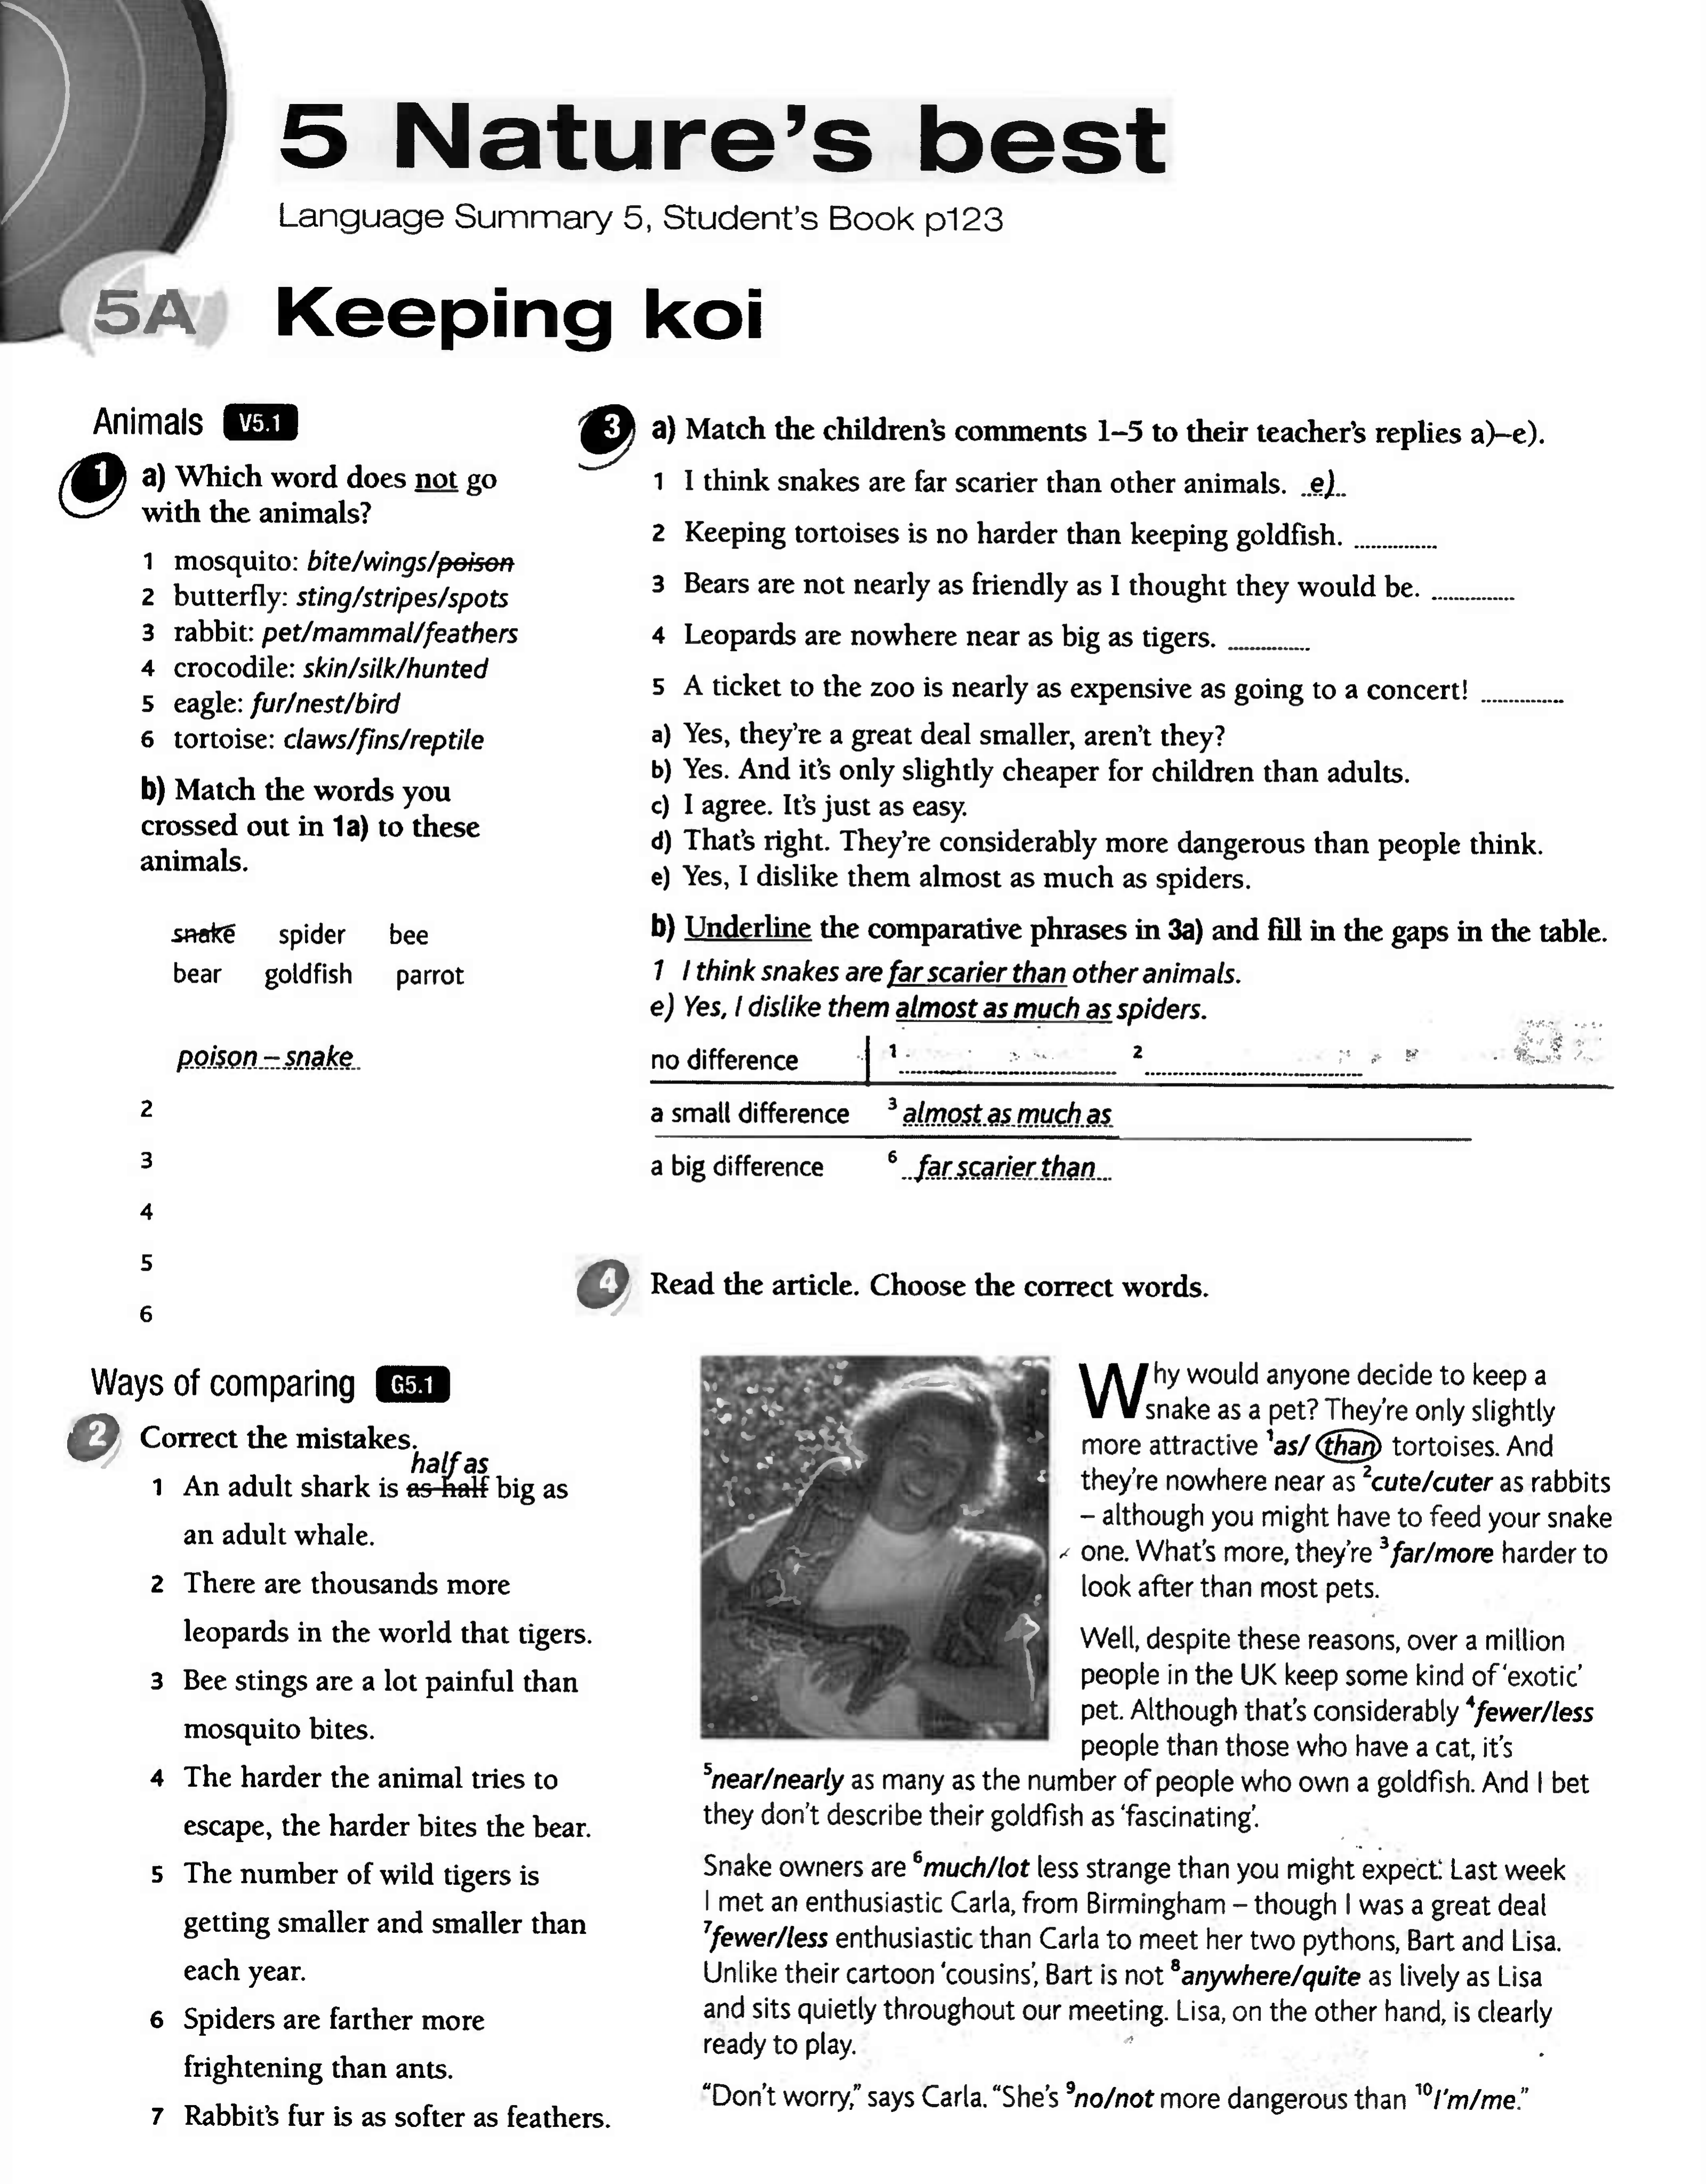 5 Nature's best
Language Summary 5, Student's Book p123
5A Keeping koi
Animals V5.1
1 a) Which word does not go
with the animals?
1 mosquito: bite/wings/poison
2 butterfly: sting/stripes/spots
3 rabbit: pet/mammal/feathers
4 crocodile: skin/silk/hunted
5 eagle: fur/nest/bird
6 tortoise: claws/fins/reptile
b) Match the words you
crossed out in 1a) to these
animals.
snake spider bee
bear goldfish parrot
poison – snake
2
3
4
5
6
Ways of comparing G5.1
2 Correct the mistakes.
half as
1 An adult shark is as half big as
an adult whale.
2 There are thousands more
leopards in the world that tigers.
3 Bee stings are a lot painful than
mosquito bites.
4 The harder the animal tries to
escape, the harder bites the bear.
5 The number of wild tigers is
getting smaller and smaller than
each year.
6 Spiders are farther more
frightening than ants.
7 Rabbit's fur is as softer as feathers.
3 a) Match the children's comments 1–5 to their teacher's replies a)–e).
1 I think snakes are far scarier than other animals. e)
2 Keeping tortoises is no harder than keeping goldfish.
3 Bears are not nearly as friendly as I thought they would be.
4 Leopards are nowhere near as big as tigers.
5 A ticket to the zoo is nearly as expensive as going to a concert!
a) Yes, they're a great deal smaller, aren't they?
b) Yes. And it's only slightly cheaper for children than adults.
c) I agree. It's just as easy.
d) That's right. They're considerably more dangerous than people think.
e) Yes, I dislike them almost as much as spiders.
b) Underline the comparative phrases in 3a) and fill in the gaps in the table.
1 I think snakes are far scarier than other animals.
e) Yes, I dislike them almost as much as spiders.
no difference 1 2
a small difference 3 almost as much as
a big difference 6 far scarier than
4 Read the article. Choose the correct words.
Why would anyone decide to keep a
snake as a pet? They're only slightly
more attractive 1as/ than tortoises. And
they're nowhere near as 2cute/cuter as rabbits
– although you might have to feed your snake
one. What's more, they're 3far/more harder to
look after than most pets.
Well, despite these reasons, over a million
people in the UK keep some kind of 'exotic'
pet. Although that's considerably 4fewer/less
people than those who have a cat, it's
5near/nearly as many as the number of people who own a goldfish. And I bet
they don't describe their goldfish as 'fascinating'.
Snake owners are 6much/lot less strange than you might expect. Last week
I met an enthusiastic Carla, from Birmingham – though I was a great deal
7fewer/less enthusiastic than Carla to meet her two pythons, Bart and Lisa.
Unlike their cartoon 'cousins', Bart is not 8anywhere/quite as lively as Lisa
and sits quietly throughout our meeting. Lisa, on the other hand, is clearly
ready to play.
"Don't worry," says Carla. "She's 9no/not more dangerous than 10I'm/me."